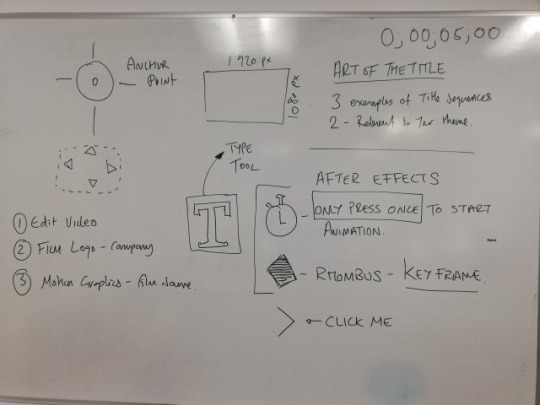 0;00;05;00
ANCHOR
POINT
1920 px
1080 px
ART OF THE TITLE
3 examples of Title Sequences
2 - Relevant to Your theme.
TYPE
TOOL
T
AFTER EFFECTS
ONLY PRESS ONCE TO START
ANIMATION.
RHOMBUS - KEYFRAME
CLICK ME
1 Edit Video
2 Film Logo - Company
3 Motion Graphics - Film Name.